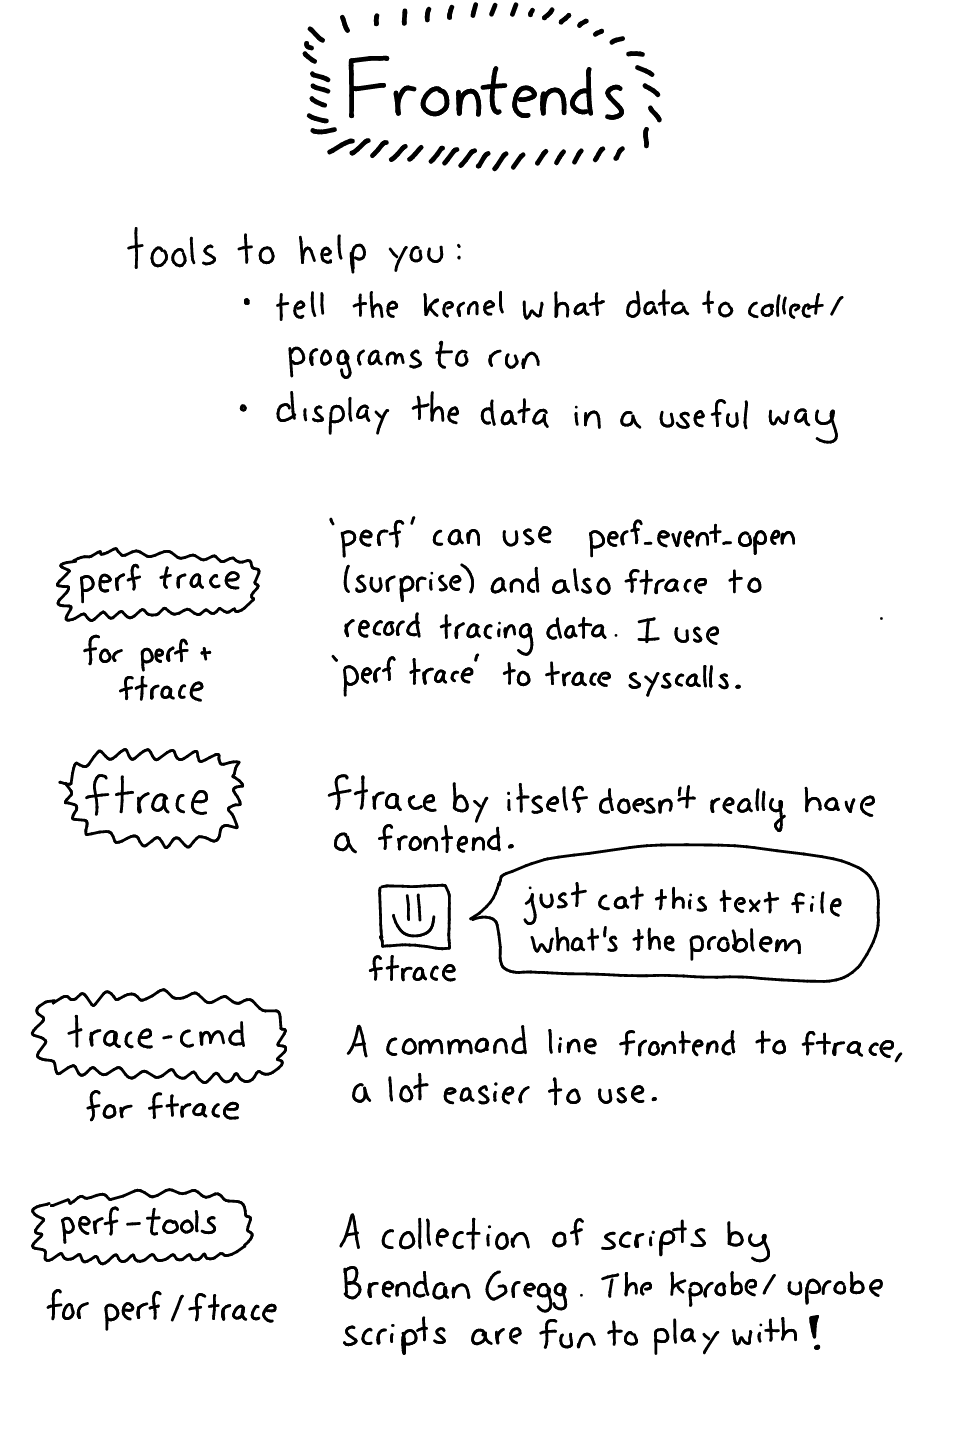 Frontends
tools to help you:
• tell the kernel what data to collect/
programs to run
• display the data in a useful way
perf trace
for perf +
ftrace
`perf' can use perf_event_open
(surprise) and also ftrace to
record tracing data. I use
`perf trace' to trace syscalls.
ftrace
ftrace by itself doesn't really have
a frontend.
ftrace
just cat this text file
what's the problem
trace-cmd
for ftrace
A command line frontend to ftrace,
a lot easier to use.
perf-tools
for perf/ftrace
A collection of scripts by
Brendan Gregg. The kprobe/uprobe
scripts are fun to play with!